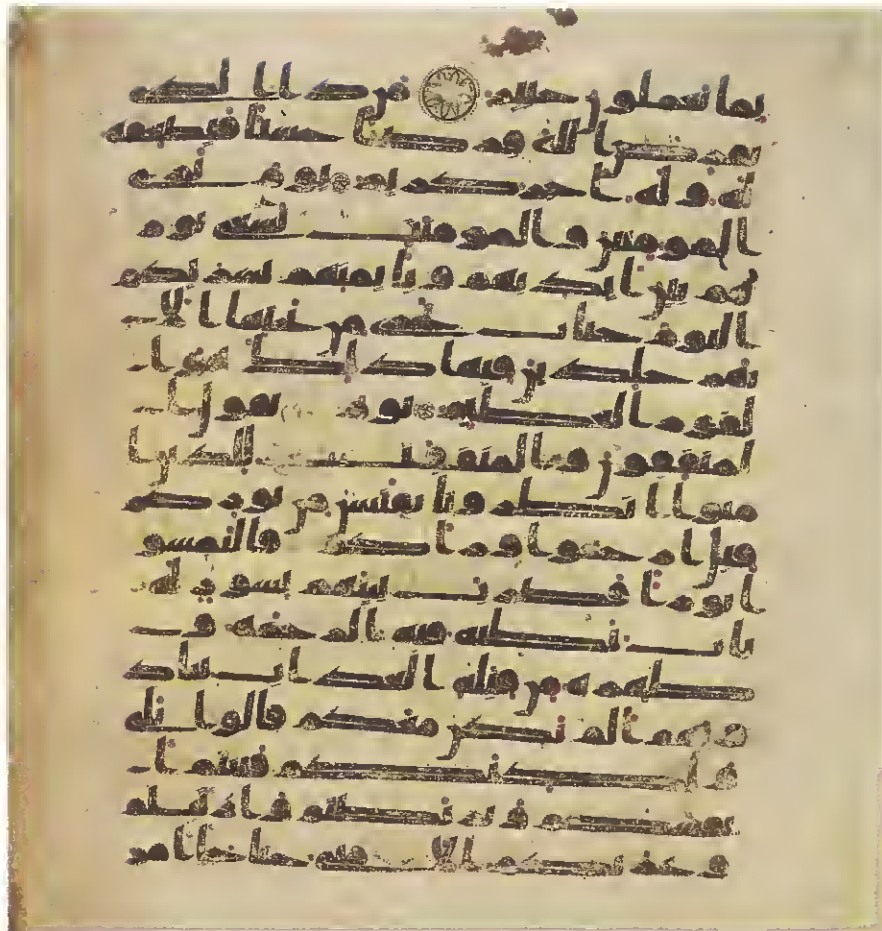 بما تعملون خبير من ذا الذي
يقرض الله قرضا حسنا فيضعفه
له وله اجر كريم يوم ترى
المومنين والمومنت يسعى نور
هم بين ايديهم وبايمنهم بشريكم
اليوم جنت تجري من تحتها الا
نهر خلدين فيها ذلك هو ا
لفوز العظيم يوم يقول ا
لمنفقون والمنفقت للذين ا
منوا انظرونا نقتبس من نوركم
قيل ارجعوا وراكم فالتمسو
ا نورا فضرب بينهم بسور له
باب باطنه فيه الرحمة و
ظهره من قبله العذاب يناد
ونهم الم نكن معكم قالوا بلى
ولكنكم فتنتم ا
نفسكم وتربصتم وارتبتم
وغرتكم الاماني حتى جا امر